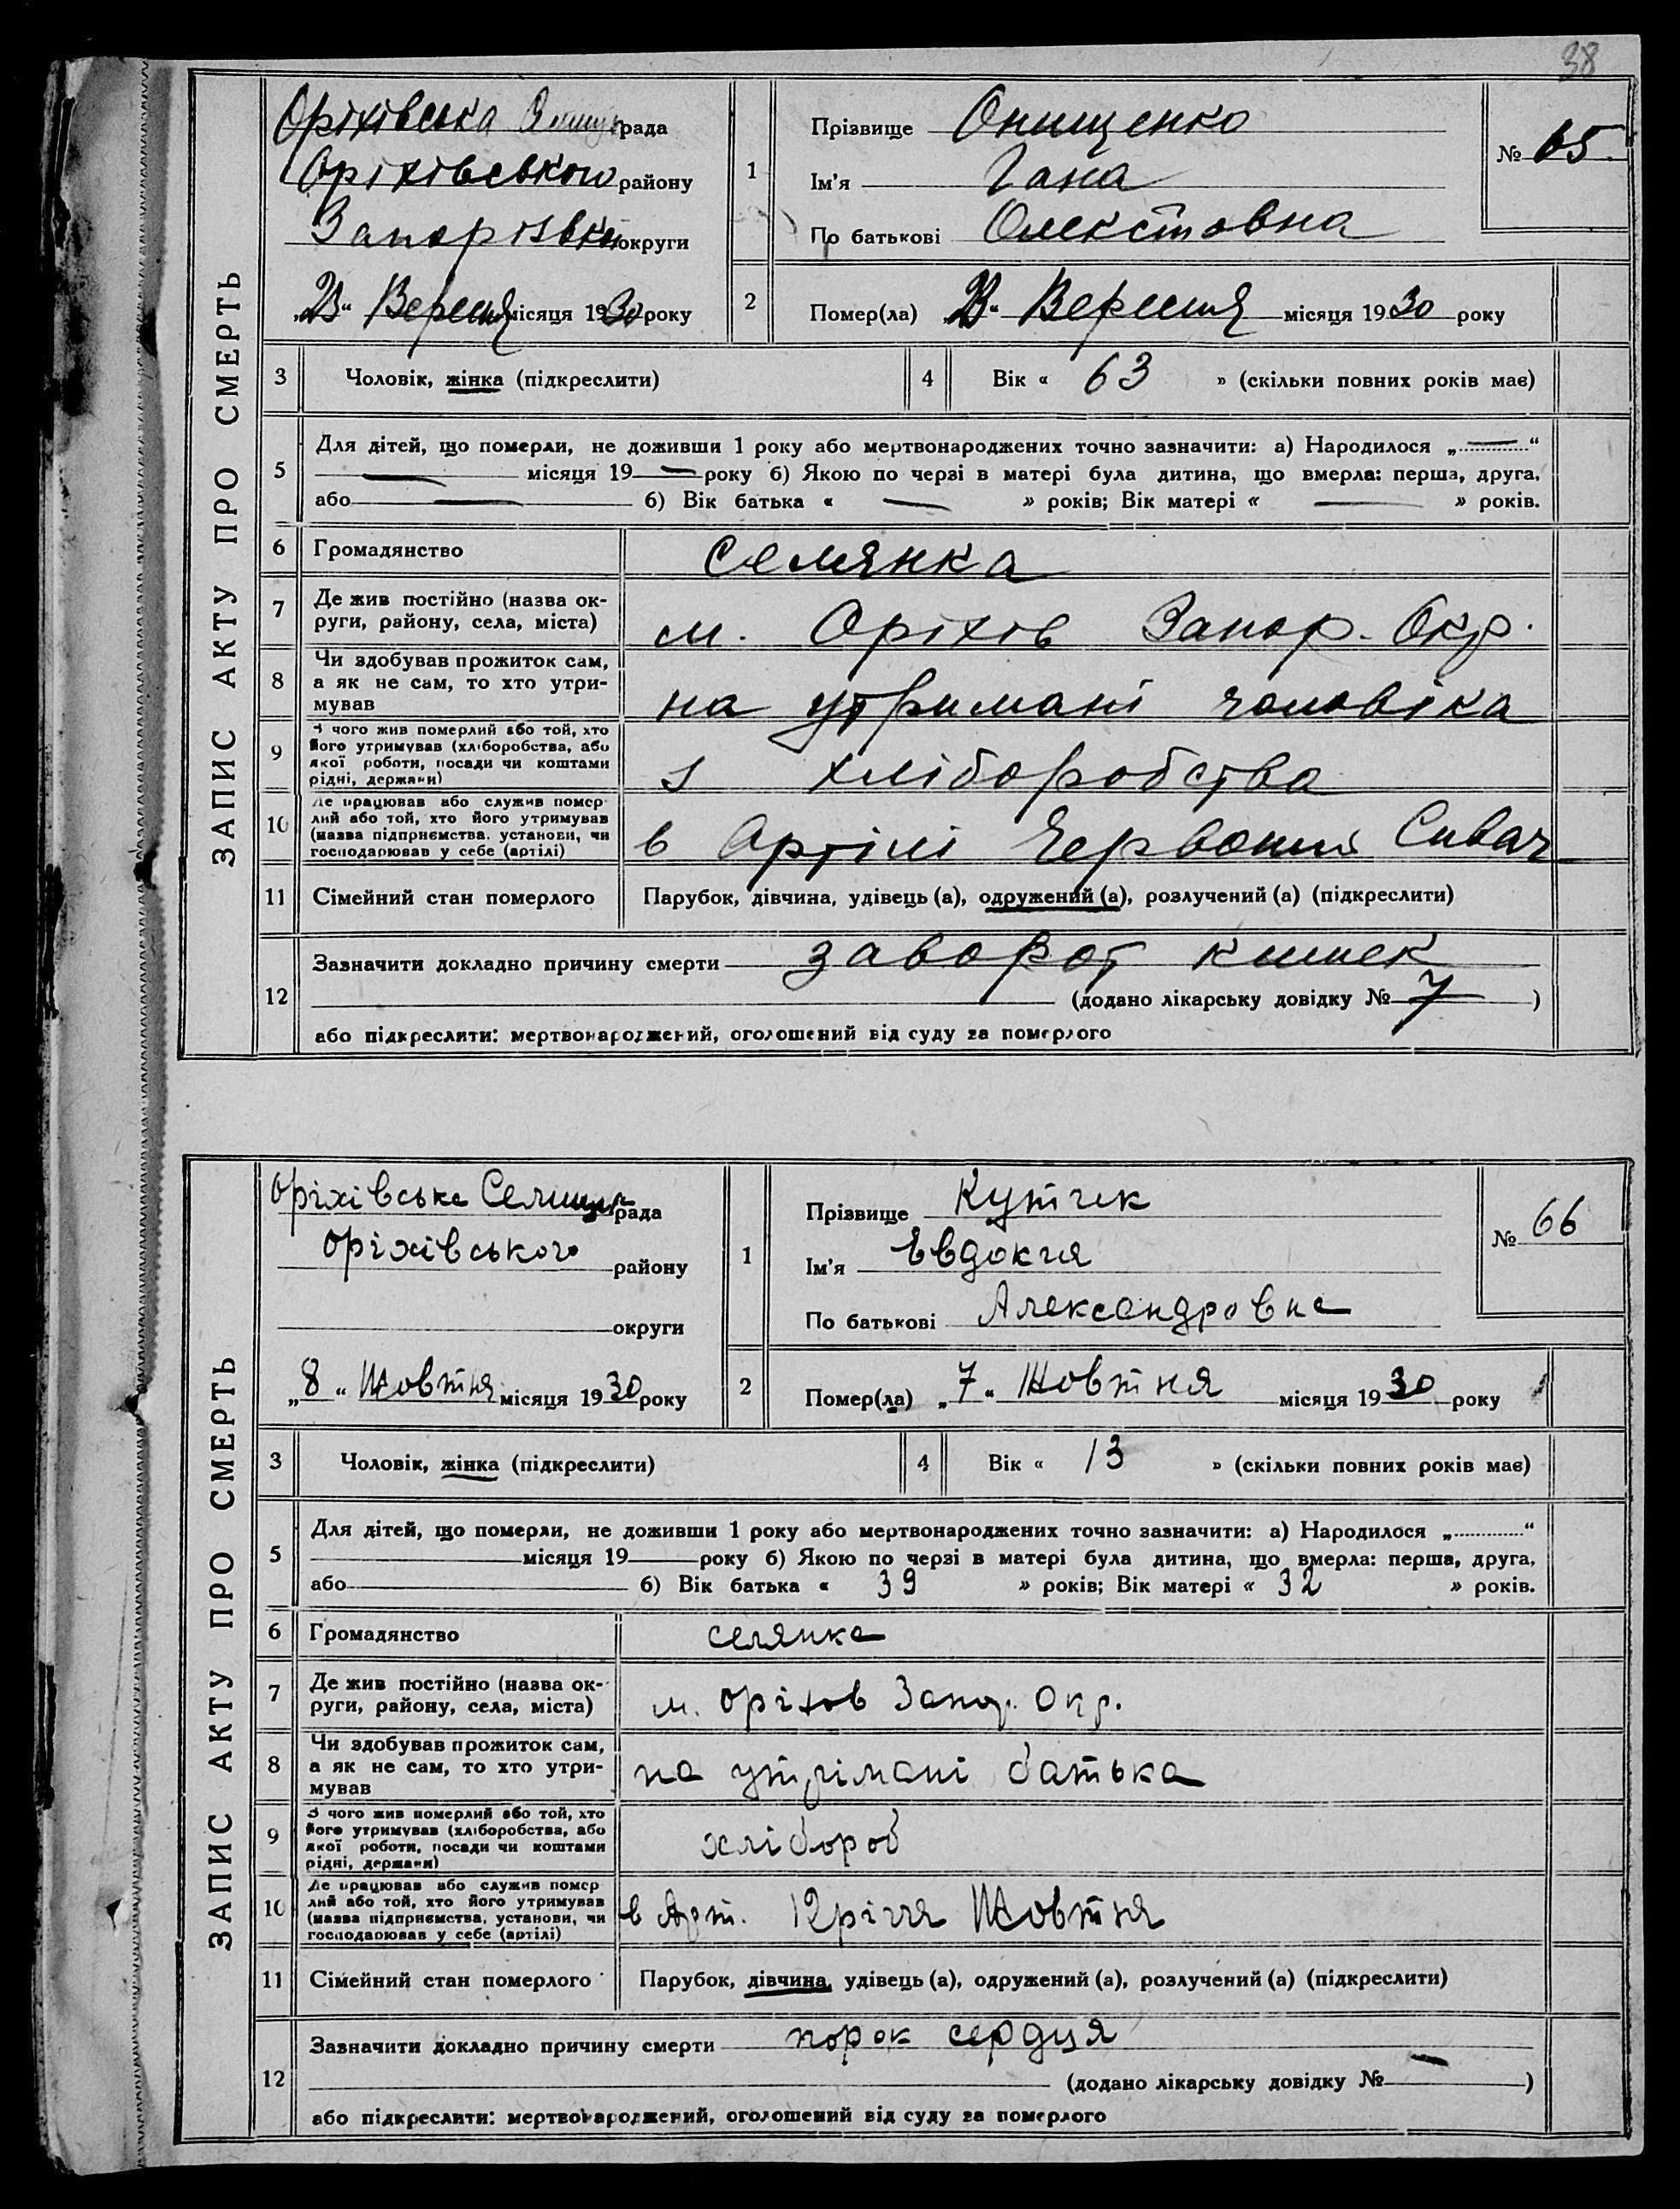 38
ЗАПИС АКТУ ПРО СМЕРТЬ
Оріхівська рада
Оріхівського району
округи
Вересня місяця 1930 року
1
Прізвище Онищенко
Ім'я Гана
По батькові
№ 65
2
Помер(ла) Вересня місяця 1930 року
3 Чоловік, жінка (підкреслити)
4 Вік « 63 » (скільки повних років має)
5 Для дітей, що померли, не доживши 1 року або мертвонароджених точно зазначити: а) Народилося „ — “
— місяця 19 — року б) Якою по черзі в матері була дитина, що вмерла: перша, друга,
або — б) Вік батька « — » років; Вік матері « — » років.
6 Громадянство селянка
7 Де жив постійно (назва ок-
руги, району, села, міста) м. Оріхів Запор. Окр.
8 Чи здобував прожиток сам,
а як не сам, то хто утри-
мував на утримані чоловіка
9 З чого жив померлий або той, хто
його утримував (хліборобства, або
якої роботи, посади чи коштами
рідні, держави) з хліборобства
10 Де працював або служив помер
лий або той, хто його утримував
(назва підприємства, установи, чи
господарював у себе (артілі) в Артілі Червоний
11 Сімейний стан померлого Парубок, дівчина, удівець (а), одружений (а), розлучений (а) (підкреслити)
12 Зазначити докладно причину смерти заворот кишек
(додано лікарську довідку № 7 )
або підкреслити: мертвонароджений, оголошений від суду за померлого
ЗАПИС АКТУ ПРО СМЕРТЬ
Оріхівська Селищн рада
Оріхівського району
округи
„ 8 “ Жовтня місяця 1930 року
1
Прізвище
Ім'я Евдокия
По батькові Александровна
№ 66
2
Помер(ла) „ 7 “ Жовтня місяця 1930 року
3 Чоловік, жінка (підкреслити)
4 Вік « 13 » (скільки повних років має)
5 Для дітей, що померли, не доживши 1 року або мертвонароджених точно зазначити: а) Народилося „ “
місяця 19 року б) Якою по черзі в матері була дитина, що вмерла: перша, друга,
або б) Вік батька « 39 » років; Вік матері « 32 » років.
6 Громадянство селянка
7 Де жив постійно (назва ок-
руги, району, села, міста) м. Оріхов Запор. Окр.
8 Чи здобував прожиток сам,
а як не сам, то хто утри-
мував на утрімані батька
9 З чого жив померлий або той, хто
його утримував (хліборобства, або
якої роботи, посади чи коштами
рідні, держави) хлібороб
10 Де працював або служив помер
лий або той, хто його утримував
(назва підприємства, установи, чи
господарював у себе (артілі) в Арт. 12річчя Жовтня
11 Сімейний стан померлого Парубок, дівчина, удівець (а), одружений (а), розлучений (а) (підкреслити)
12 Зазначити докладно причину смерти порок сердця
(додано лікарську довідку № — )
або підкреслити: мертвонароджений, оголошений від суду за померлого